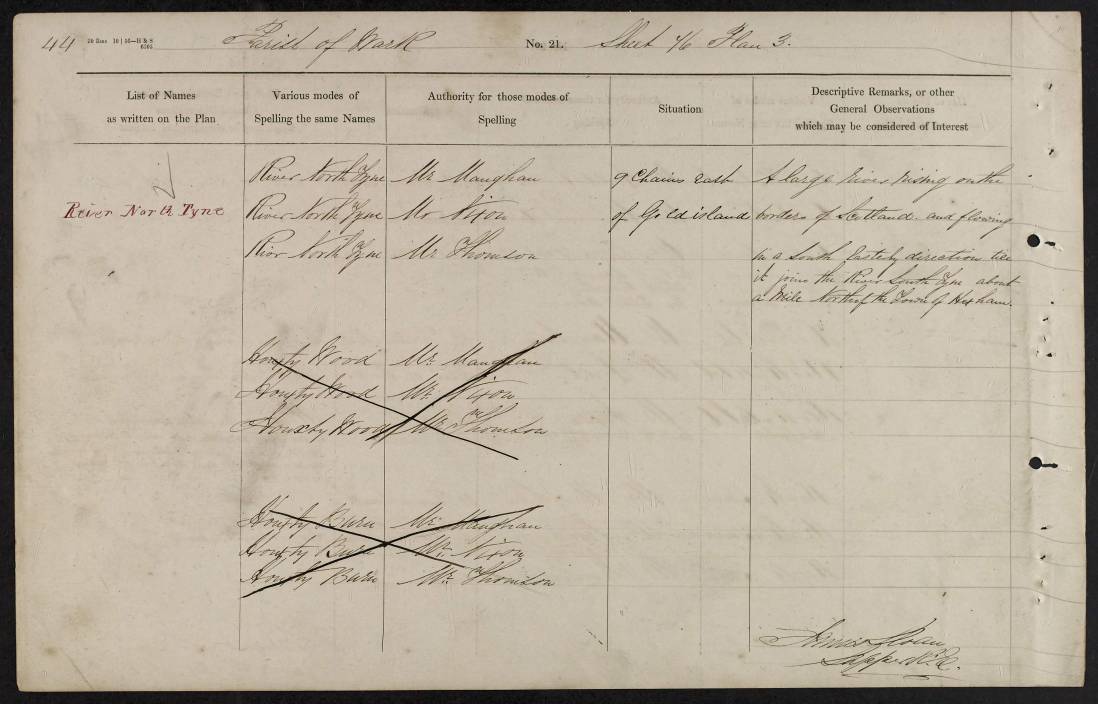 44
Parish of Wark
No. 21.
Sheet 76 Plan 3.
List of Names
as written on the Plan
Various modes of
Spelling the same Names
Authority for those modes of
Spelling
Situation
Descriptive Remarks, or other
General Observations
which may be considered of Interest
River North Tyne
River North Tyne Mr Maughan 9 Chains East A large River rising on the
River North Tyne Mr Nixon of Gold island borders of Scotland and flowing
River North Tyne Mr Thomson in a South Easterly direction till
it joins the River South Tyne about
a Mile North of the Town of Hexham.
Houxty Wood Mr Maughan
Houxty Wood Mr Nixon
Houxty Wood Mr Thomson
Houxty Burn Mr Maughan
Houxty Burn Mr Nixon
Houxty Burn Mr Thomson
James Sloan
Sapper R.E.